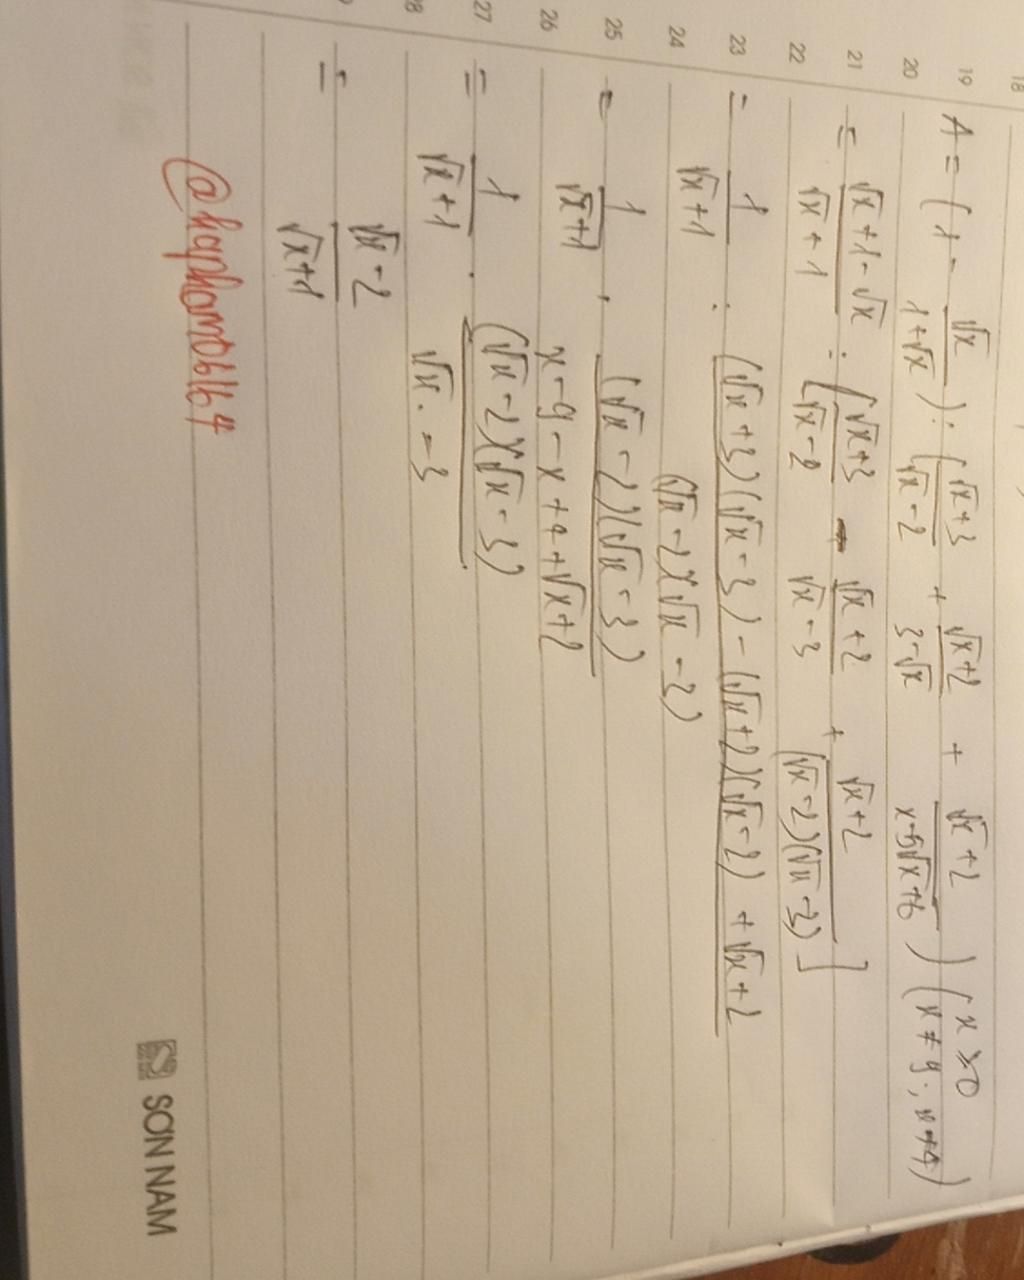 18
19
20
21
22
23
24
25
26
27
28
A = (1 - √x/(1+√x)) : (√x+3/(√x-2) + √x+2/(3-√x) + √x+2/(x-5√x+6)) (x ≥ 0 x ≠ 9; x ≠ 4)
= √x+1-√x/(√x+1) : [√x+3/(√x-2) - √x+2/(√x-3) + √x+2/((√x-2)(√x-3))]
= 1/(√x+1) : (√x+3)(√x-3) - (√x+2)(√x-2) + √x+2/((√x-2)(√x-3))
= 1/(√x+1) . (√x-2)(√x-3)/(x-9-x+4+√x+2)
= 1/(√x+1) . (√x-2)(√x-3)/(√x-3)
= √x-2/(√x+1)
@haphamob164
SƠN NAM